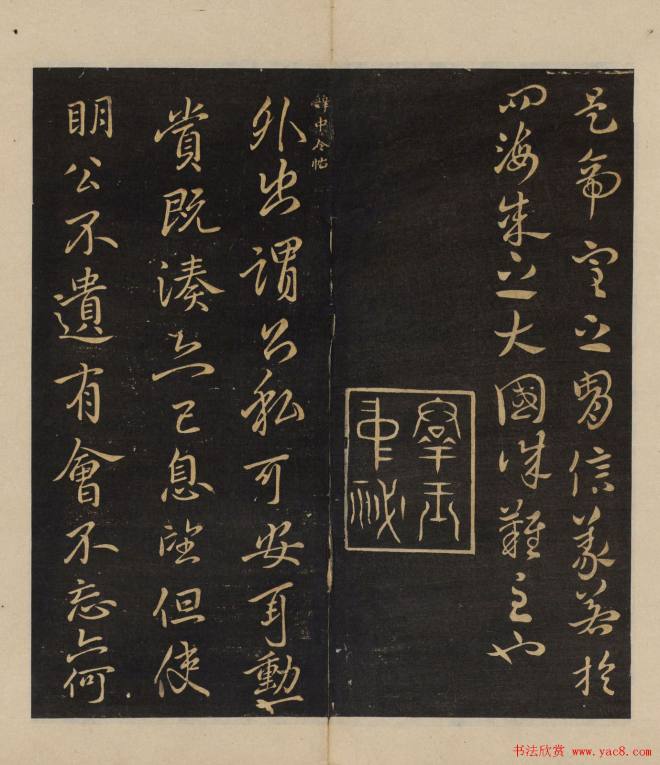 是帝室之胄信義著於
四海 之大國 難 也
羣玉中秘
辭中令帖
外出謂公私可安耳動
賞既湊亦已息望但使
明公不遺有會不忘亦何
书法欣赏 www.yac8.com